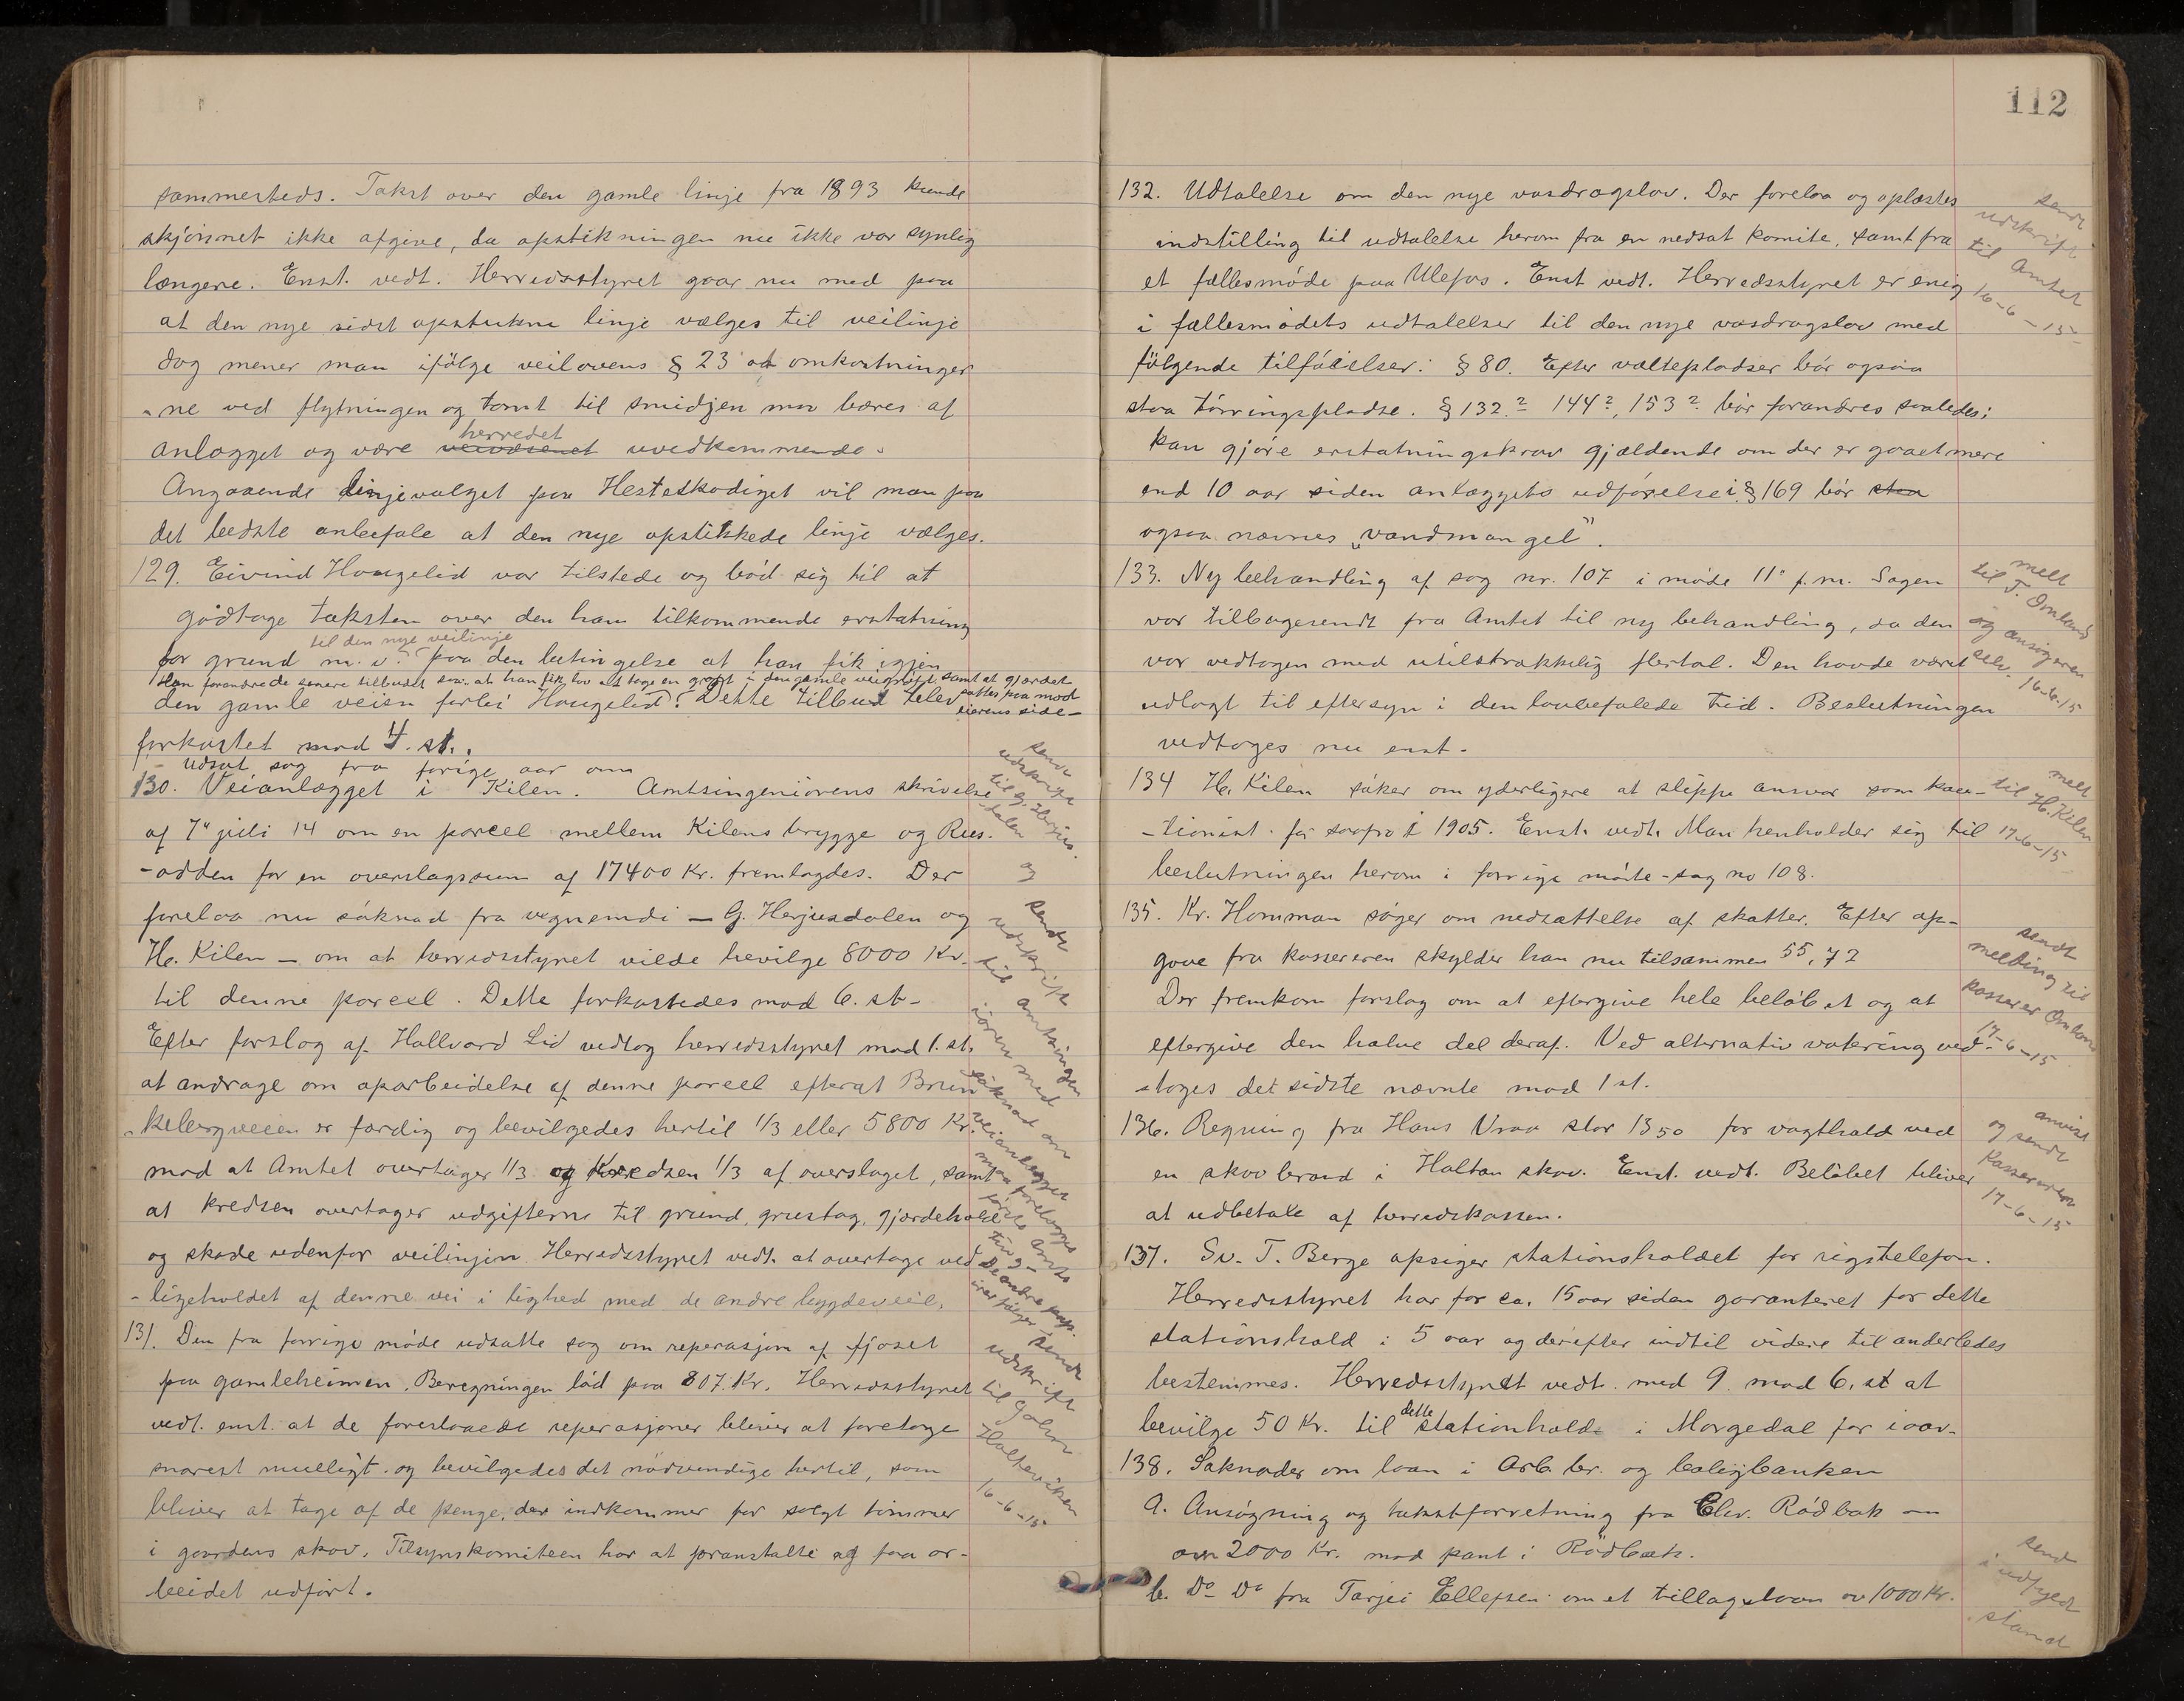 sammesteds. Takst over den gamle linje fra 1893 kunde
skjønnet ikke afgive, da opstikningen nu ikke var synlig
længere. Enst. vedt. Herredsstyret gaar nu med paa
at den nye sidst opstukne linje vælges til veilinje
dog mener man ifølge veilovens § 23 at omkostninger
-ne ved flytningen og tomt til smidjen maa bæres af
herredet
anlægget og være veivæsenet uvedkommende.
Angaaende linjevalget paa Hesteskodiget vil man paa
det bedste anbefale at den nye opstikkede linje vælges.
129. Eivind Haugelid var tilstede og bød sig til at
godtage taksten over den ham tilkommende erstatning
til den nye veilinje
for grund m. v. paa den betingelse at han fik igjen
Han forandrede senere tilbudet saa, at han fik lov at tage en grøft i den gamle veigrøft samt at gjærdet
sættes paa mod
eierens side-
den gamle veien forbi Haugelid? Dette tilbud blev
forkastet mod 4. st.
Udsat sag fra forige aar om
130. Veianlægget i Kilen. Amtsingeniørens skrivelse
af 7de juli 14 om en parcel mellem Kilens brygge og Rus-
-odden for en overslagssum af 17400 Kr. fremlagdes. Der
forelaa nu søknad fra vegnemdi - G. Herjusdalen og
H. Kilen - om at herredsstyret vilde bevilge 8000 Kr.
til denne parcel. Dette forkastedes mod 6. st-
Efter forslag af Hallvard Lid vedtog herredsstyret mod 1. st.
at andrage om oparbeidelse af denne parcel efterat Brun
-kebergveien er færdig og bevilgedes hertil 1/3 eller 5800 Kr.
mod at Amtet overtager 1/3 og Kredsen 1/3 af overslaget, samt
at kredsen overtager udgifterne til grund, grustag, gjærdehold
og skade udenfor veilinjen. Herredsstyret vedt. at overtage ved
-ligeholdet af denne vei i lighed med de andre bygdeveie.
131. Den fra forrige møde udsatte sag om reperasjon af fjøset
paa gamleheimen. Beregningen lød paa 807. Kr. Herredsstyret
vedt. enst. at de foreslaaede reperasjoner bliver at foretage
snarest mulligt. og bevilgedes det nødvendige hertil, som
bliver at tage af de penge, der indkommer for solgt tømmer
i gaardens skov. Tilsynskomiteen har at foranstalte og faa ar-
beidet udført.
sendt
udskrift
til G. Herjus-
dalen
og
sendt
udskrift
til amtsingen
iøren med
søknad om
veianlægget
maa forelægges
første amts
ting-
De andre pap-
irer følger
sendt
udskrift
til
Halvor
16-6-15
112
132. Udtalelse om den nye vasdragslov. Der forelaa og oplæstes
indstilling til udtalelse herom fra en nedsat komite, samt fra
et fællesmøde paa Ulefos. Enst vedt. Herredsstyret er enig
i fællesmødets udtalelser til den nye vasdragslov med
følgende tilføielser: § 80. Efter væltepladser bør ogsaa
staa tørringspladse. § 132.2 144 2, 153 2 bør forandres saaledes:
kan gjøre erstatningskrav gjældende om der er gaaet mere
end 10 aar siden anlæggets udførelse i. § 169 bør staa
ogsaa nævnes „vandmangel".
133. Ny behandling af sag nr. 107 i møde 11te f. m. Sagen
var tilbagesendt fra Amtet til ny behandling, da den
var vedtagen med utilstrækkelig flertal. Den havde været
udlagt til eftersyn i den lovbefalede tid. Beslutningen
vedtoges nu enst-
134 H. Kilen søker om yderligere at slippe ansvar som kau-
-tionist for 1905. Enst. vedt. Man henholder sig til
beslutningen herom i forrige møte - sag no 108.
135. Kr. Homman søger om nedsættelse af skatter. Efter op-
gave fra kassereren skylder han nu tilsammen 55,72
Der fremkom forslag om at eftergive hele beløbet og at
eftergive den halve del deraf. Ved alternativ votering ved-
-toges det sidste nævnte mod 1 st.
136. Regning fra Hans Vraa stor 13 50 for vagthald ved
en skovbrand i Haltan skov. Enst. vedt. Beløbet bliver
at udbetale af herredskassen.
137. Sv. T. Berge opsiger stationsholdet for rigstelefon.
Herredsstyret har for ca. 15 aar siden garanteret for dette
stationshold i 5 aar og derefter indtil videre til anderledes
bestemmes. Herredsstyret vedt. med 9. mod 6. st at
dette
bevilge 50 Kr. til stationhold i Morgedal for iaar.
138. Søknader om laan i Arb. br. og boligbanken
A. Ansøgning og takstforretning fra Elev. Rødbæk -
om 2000 Kr. mod pant i Rødbæk.
b. Do Do fra Tarjei Ellefsen om et tillægslaan av 1000 Kr.
sendt
udskrift
til Amtet
16-6-15
melt
til T. Omland
og ansøgeren
selv. 16-6-15
melt
til H. Kilen
17-6-15
sendt
melding til
kasserer Omland
17-6-15
anvist
og sendt
Kassereren
17-6-15
send
i udfyldt
stand